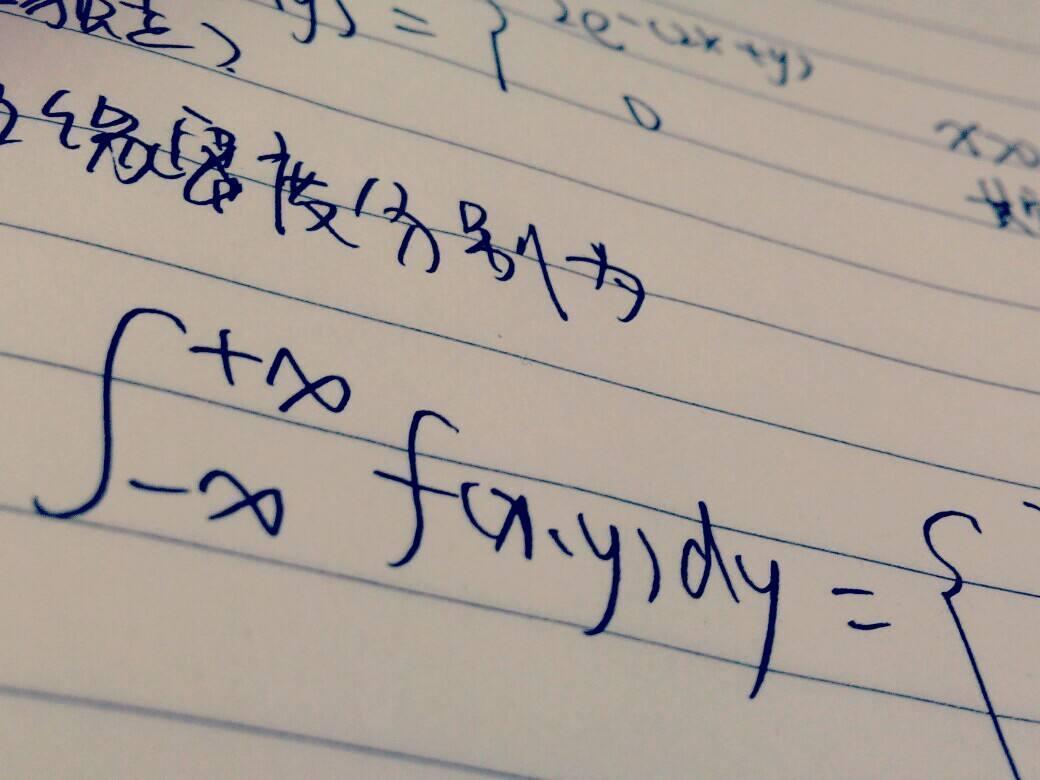 y) = { 2e-(2x+y)
0 x>0
缘密度分别为
∫+∞ -∞ f(x,y)dy = {